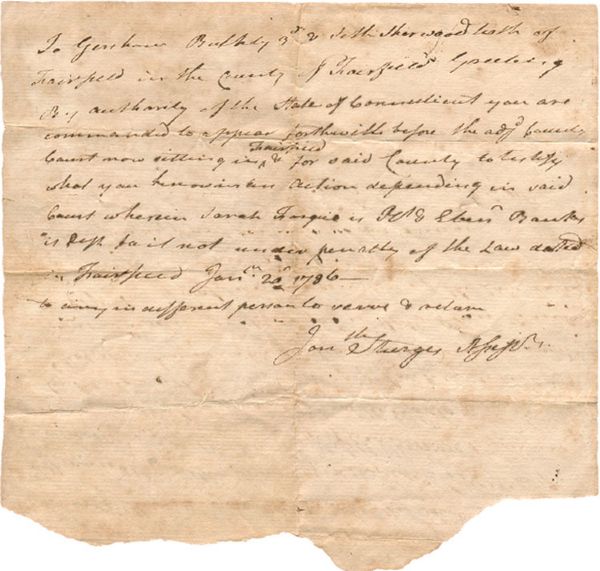 To Gershom Bulkly 3d & Seth Sherwood both of
Fairfield in the County of Fairfield Greeting
By authority of the State of Connecticut you are
commanded to appear forthwith before the adjd County
Fairfield
Court now sitting in & for said County to testify
what you know in an action depending in said
Court wherein Sarah is Plt & Ebenr Banks
is Deft fail not under penalty of the Law dated
in Fairfield Jany 20d 1786
to any indifferent person to serve & return
Jonth Sturges